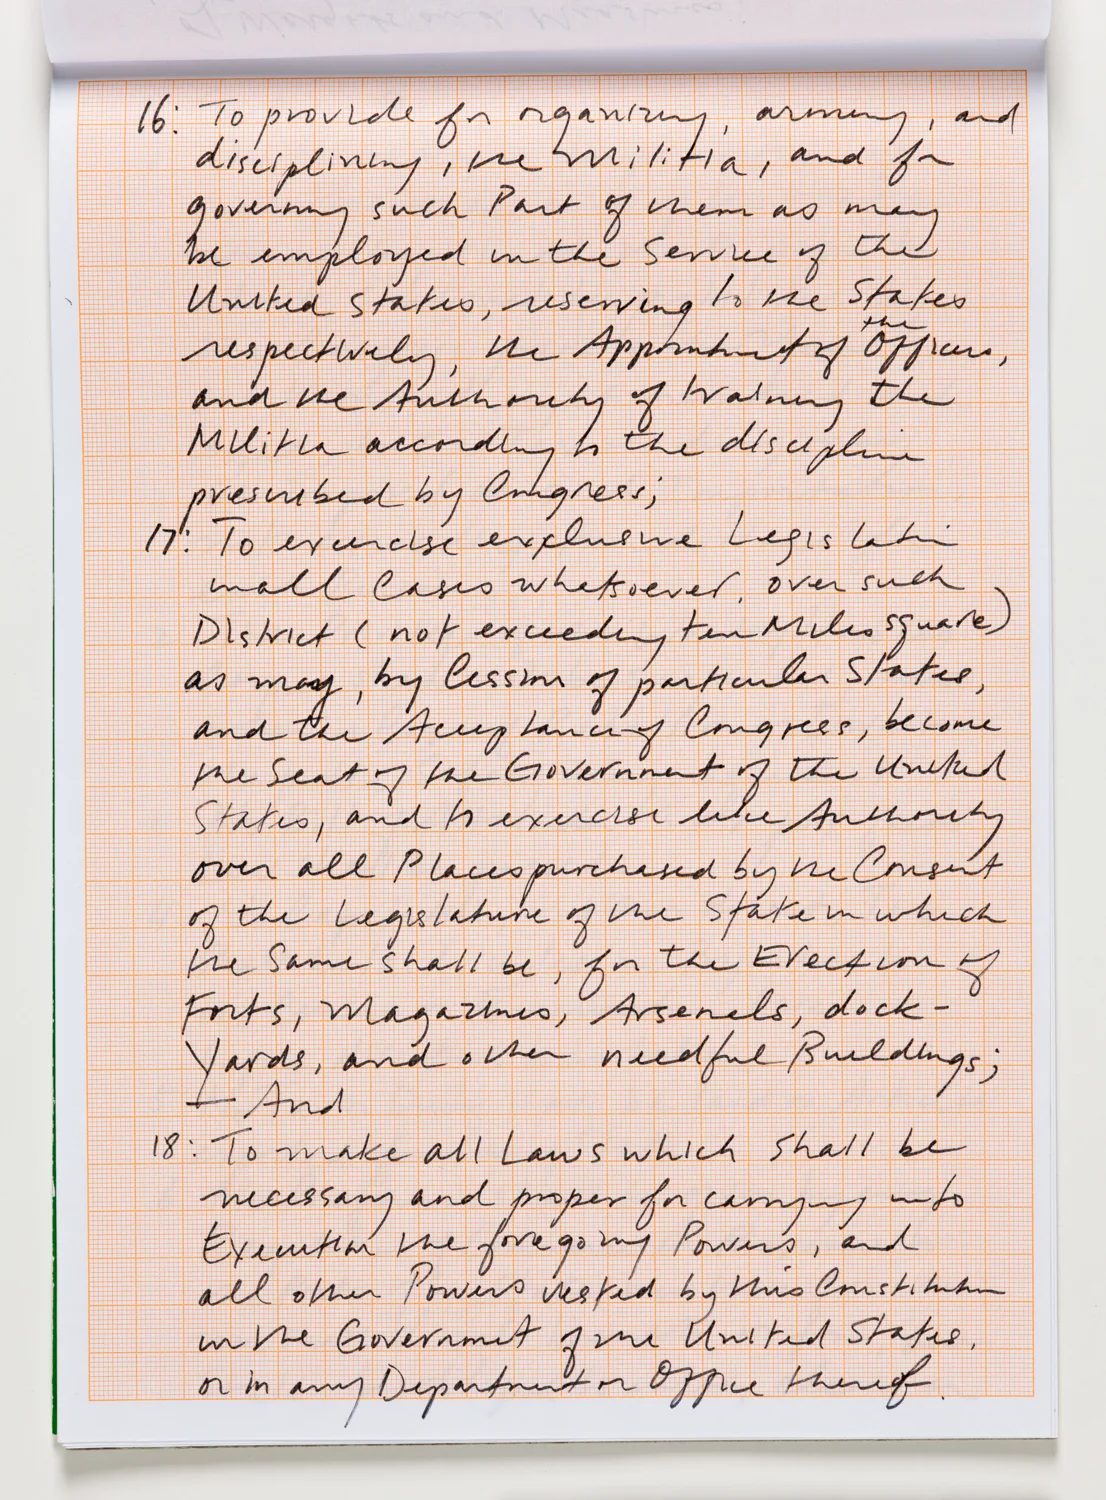 16: To provide for organizing, arming, and
disciplining, the Militia, and for
governing such Part of them as may
be employed in the Service of the
United States, reserving to the States
respectively, the Appointment of the Officers,
and the Authority of training the
Militia according to the discipline
prescribed by Congress;
17: To exercise exclusive Legislation
in all Cases whatsoever, over such
District (not exceeding ten Miles square)
as may, by Cession of particular States,
and the Acceptance of Congress, become
the Seat of the Government of the United
States, and to exercise like Authority
over all Places purchased by the Consent
of the Legislature of the State in which
the Same shall be, for the Erection of
Forts, Magazines, Arsenals, dock-
Yards, and other needful Buildings;
— And
18: To make all Laws which shall be
necessary and proper for carrying into
Execution the foregoing Powers, and
all other Powers vested by this Constitution
in the Government of the United States,
or in any Department or Office thereof.